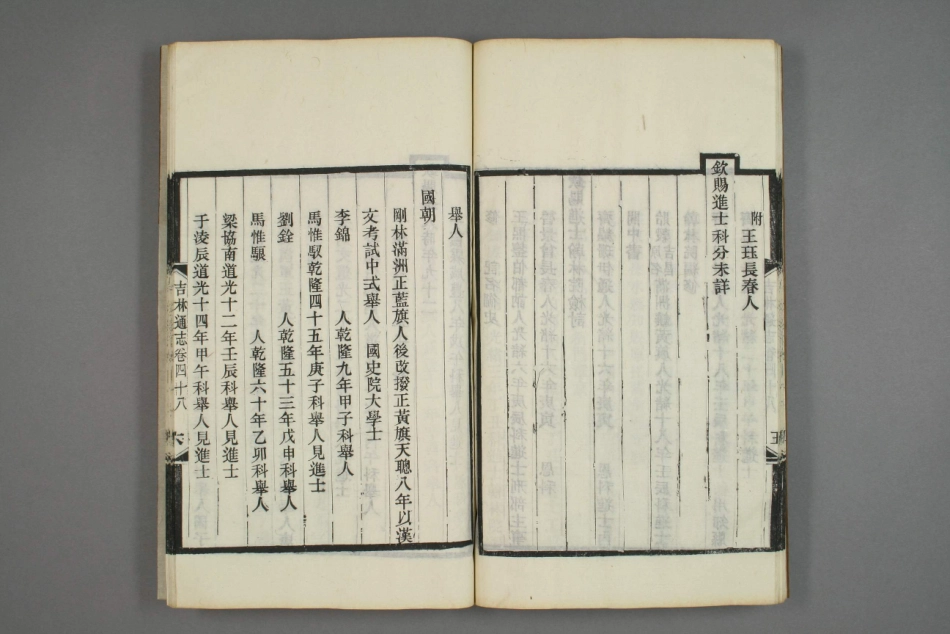 附
王玨長春人
欽賜進士科分未詳
舉人
國朝
剛林滿洲正藍旗人後改撥正黃旗天聰八年以漢
文考試中式舉人 國史院大學士
李錦 人乾隆九年甲子科舉人
馬惟馭乾隆四十五年庚子科舉人見進士
劉銓 人乾隆五十三年戊申科舉人
馬惟騵 人乾隆六十年乙卯科舉人
梁協南道光十二年壬辰科舉人見進士
于凌辰道光十四年甲午科舉人見進士
吉林通志卷四十八 六